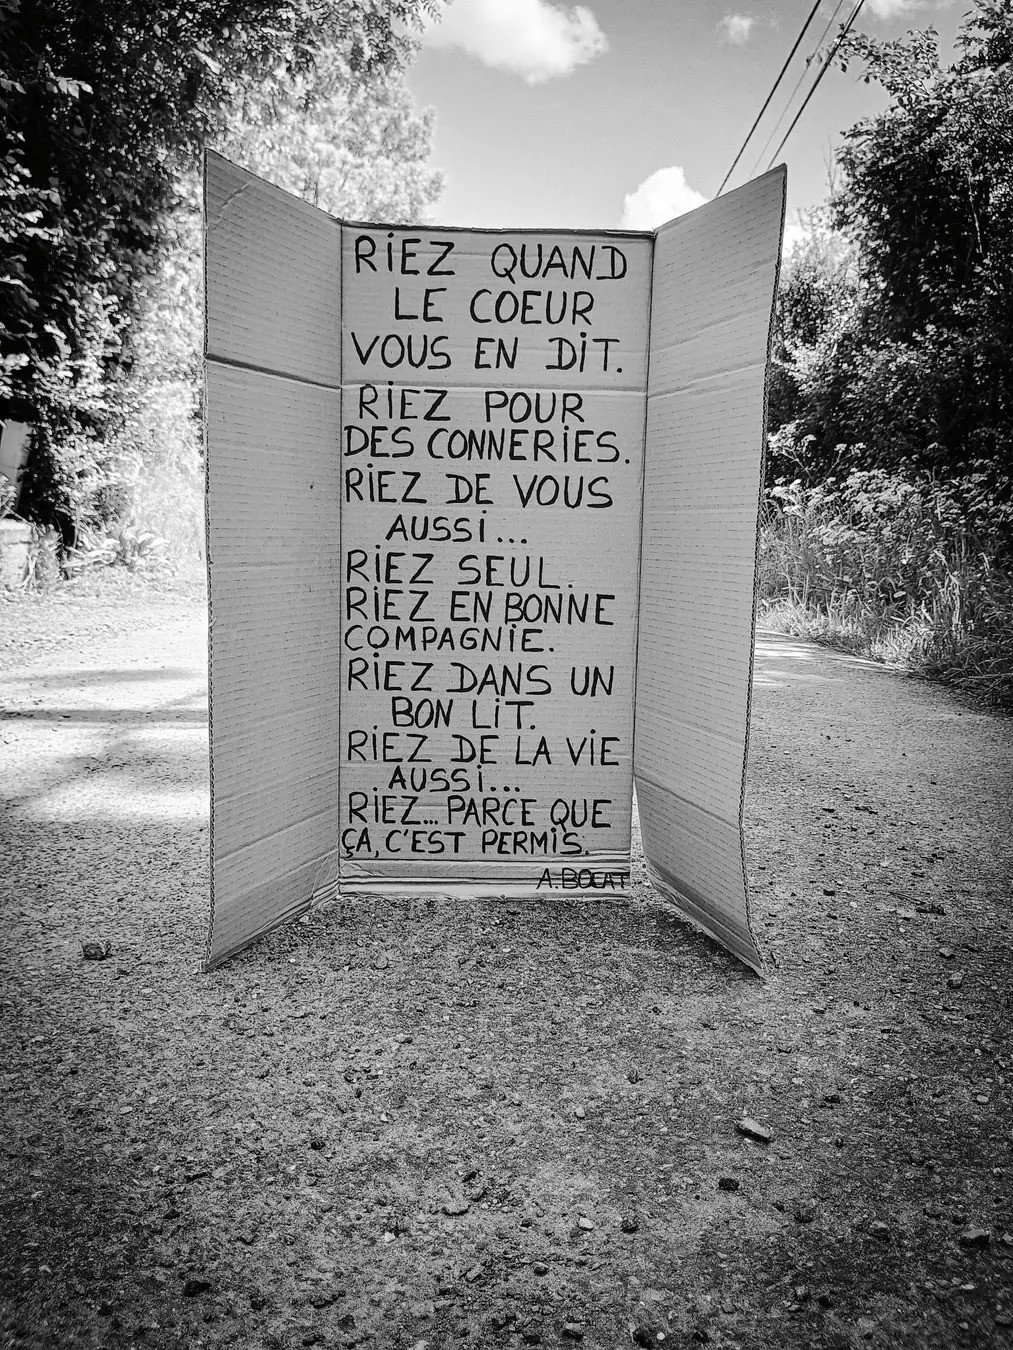 RIEZ QUAND
LE COEUR
VOUS EN DIT.
RIEZ POUR
DES CONNERIES.
RIEZ DE VOUS
AUSSI...
RIEZ SEUL.
RIEZ EN BONNE
COMPAGNIE.
RIEZ DANS UN
BON LIT.
RIEZ DE LA VIE
AUSSI...
RIEZ... PARCE QUE
ÇA, C'EST PERMIS.
A.